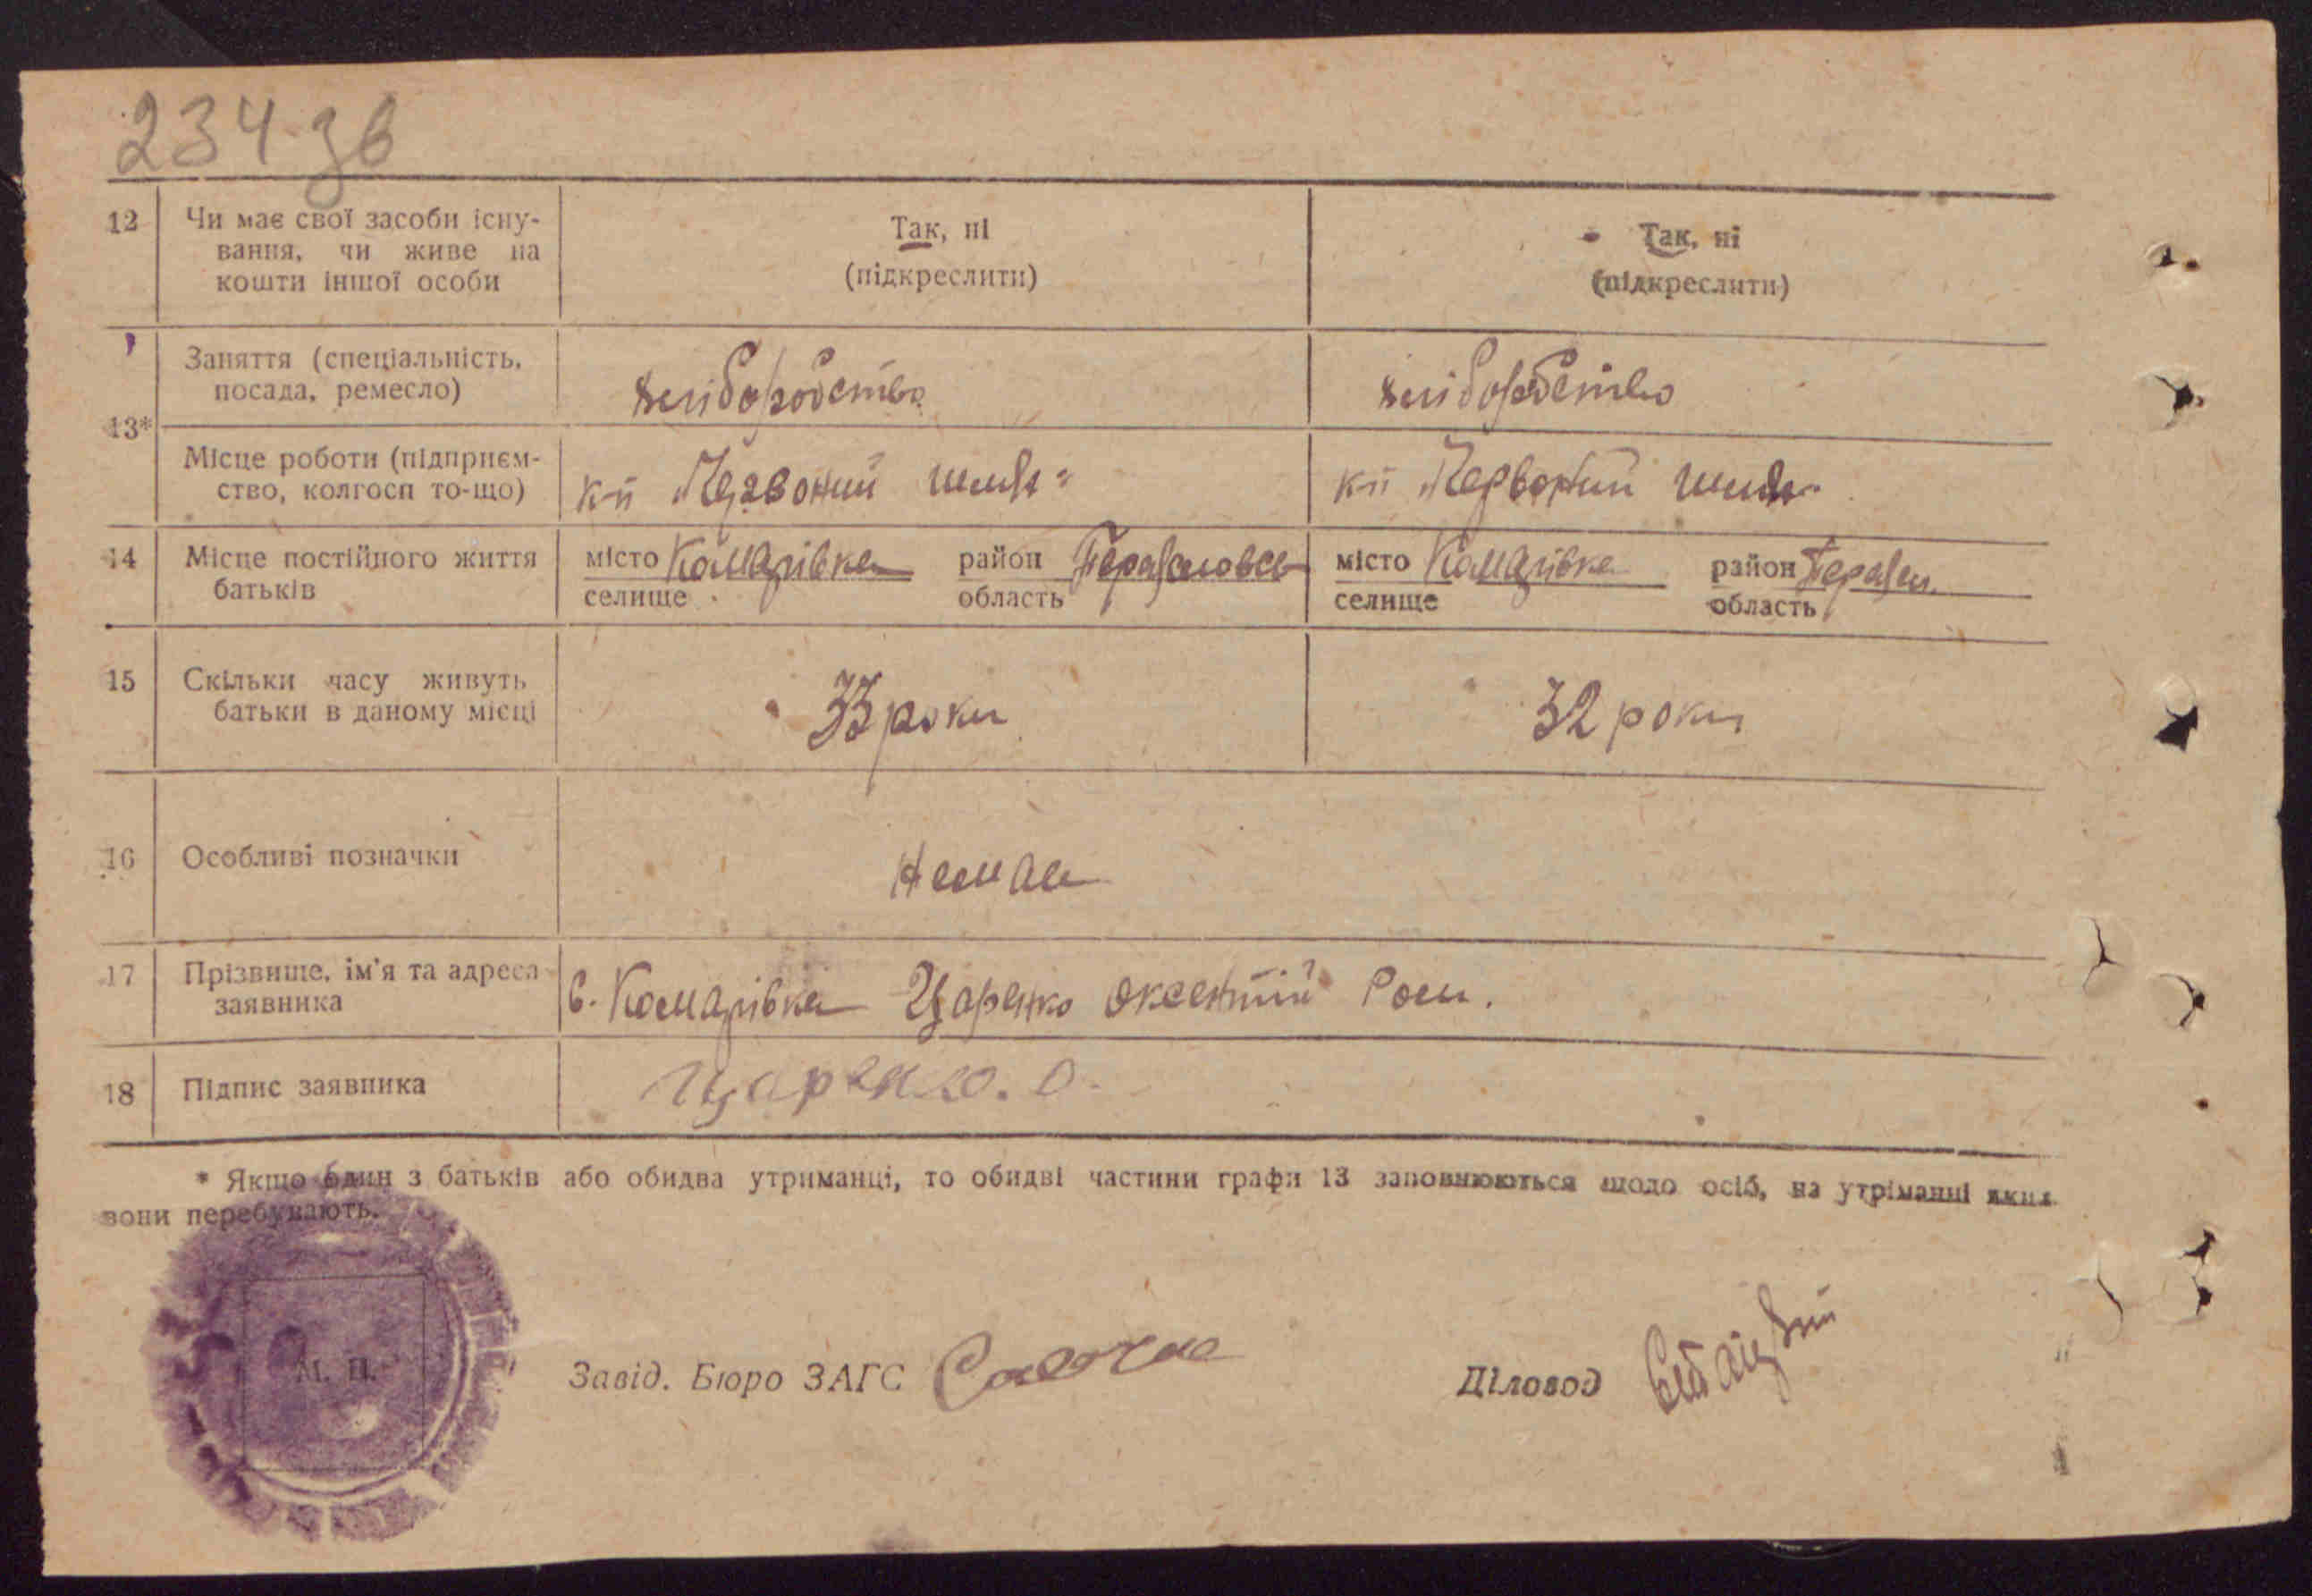 234 зв
12 Чи має свої засоби існу-
вання, чи живе на
кошти іншої особи
Так, ні
(підкреслити)
Так, ні
(підкреслити)
13*
Заняття (спеціальність,
посада, ремесло)
хлібороб́ство
хліборобство
Місце роботи (підприєм-
ство, колгосп то-що)
к-п Червоний шлях
к-п Червоний шлях
14 Місце постійного життя
батьків
місто Комарівка район
селище область
місто Комарівка район
селище область
15 Скільки часу живуть
батьки в даному місці
33 роки
32 роки
16 Особливі позначки
Немає
17 Прізвище, ім'я та адреса
заявника
с. Комарівка Царенко Оксентий Ром.
18 Підпис заявника
Царенко. О.
* Якщо один з батьків або обидва утриманці, то обидві частини графи 13 заповнюються щодо осіб, на утріманні яких
вони перебувають.
М. П.
Завід. Бюро ЗАГС
Діловод